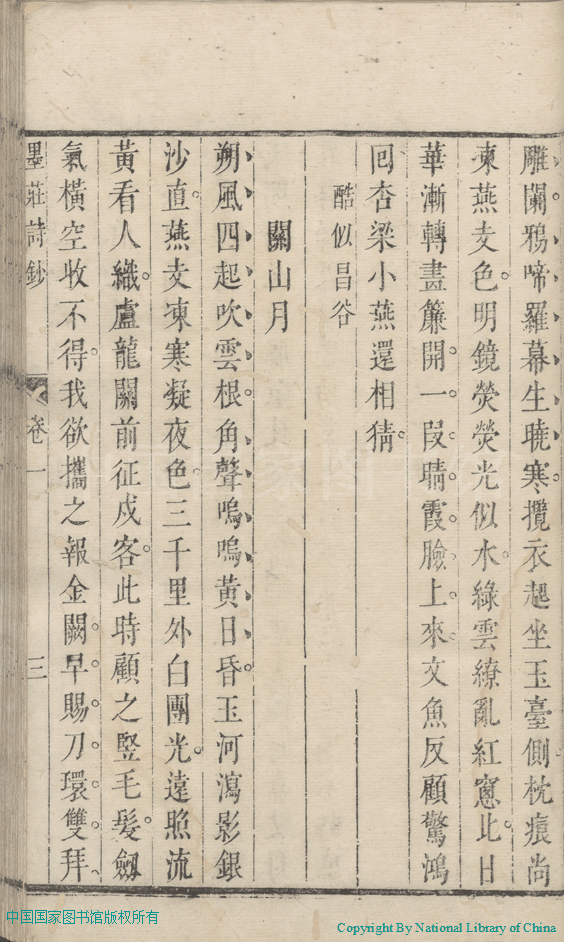 雕闌鴉啼羅幕生曉寒攬衣起坐玉臺側枕痕尚
凍燕支色明鏡熒熒光似水綠雲繚亂紅窻此日
華漸轉畫簾開一段晴霞臉上來文魚反顧驚鴻
回杏梁小燕還相猜
酷似昌谷
關山月
朔風四起吹雲根角聲嗚嗚黃日昏玉河瀉影銀
沙直燕支凍寒凝夜色三千里外白團光遠照流
黃看人織盧龍關前征戍客此時顧之竪毛髮劒
氣橫空收不得我欲攜之報金闕早賜刀環雙拜
墨莊詩鈔 卷一 三
中国国家图书馆版权所有
Copyright By National Library of China